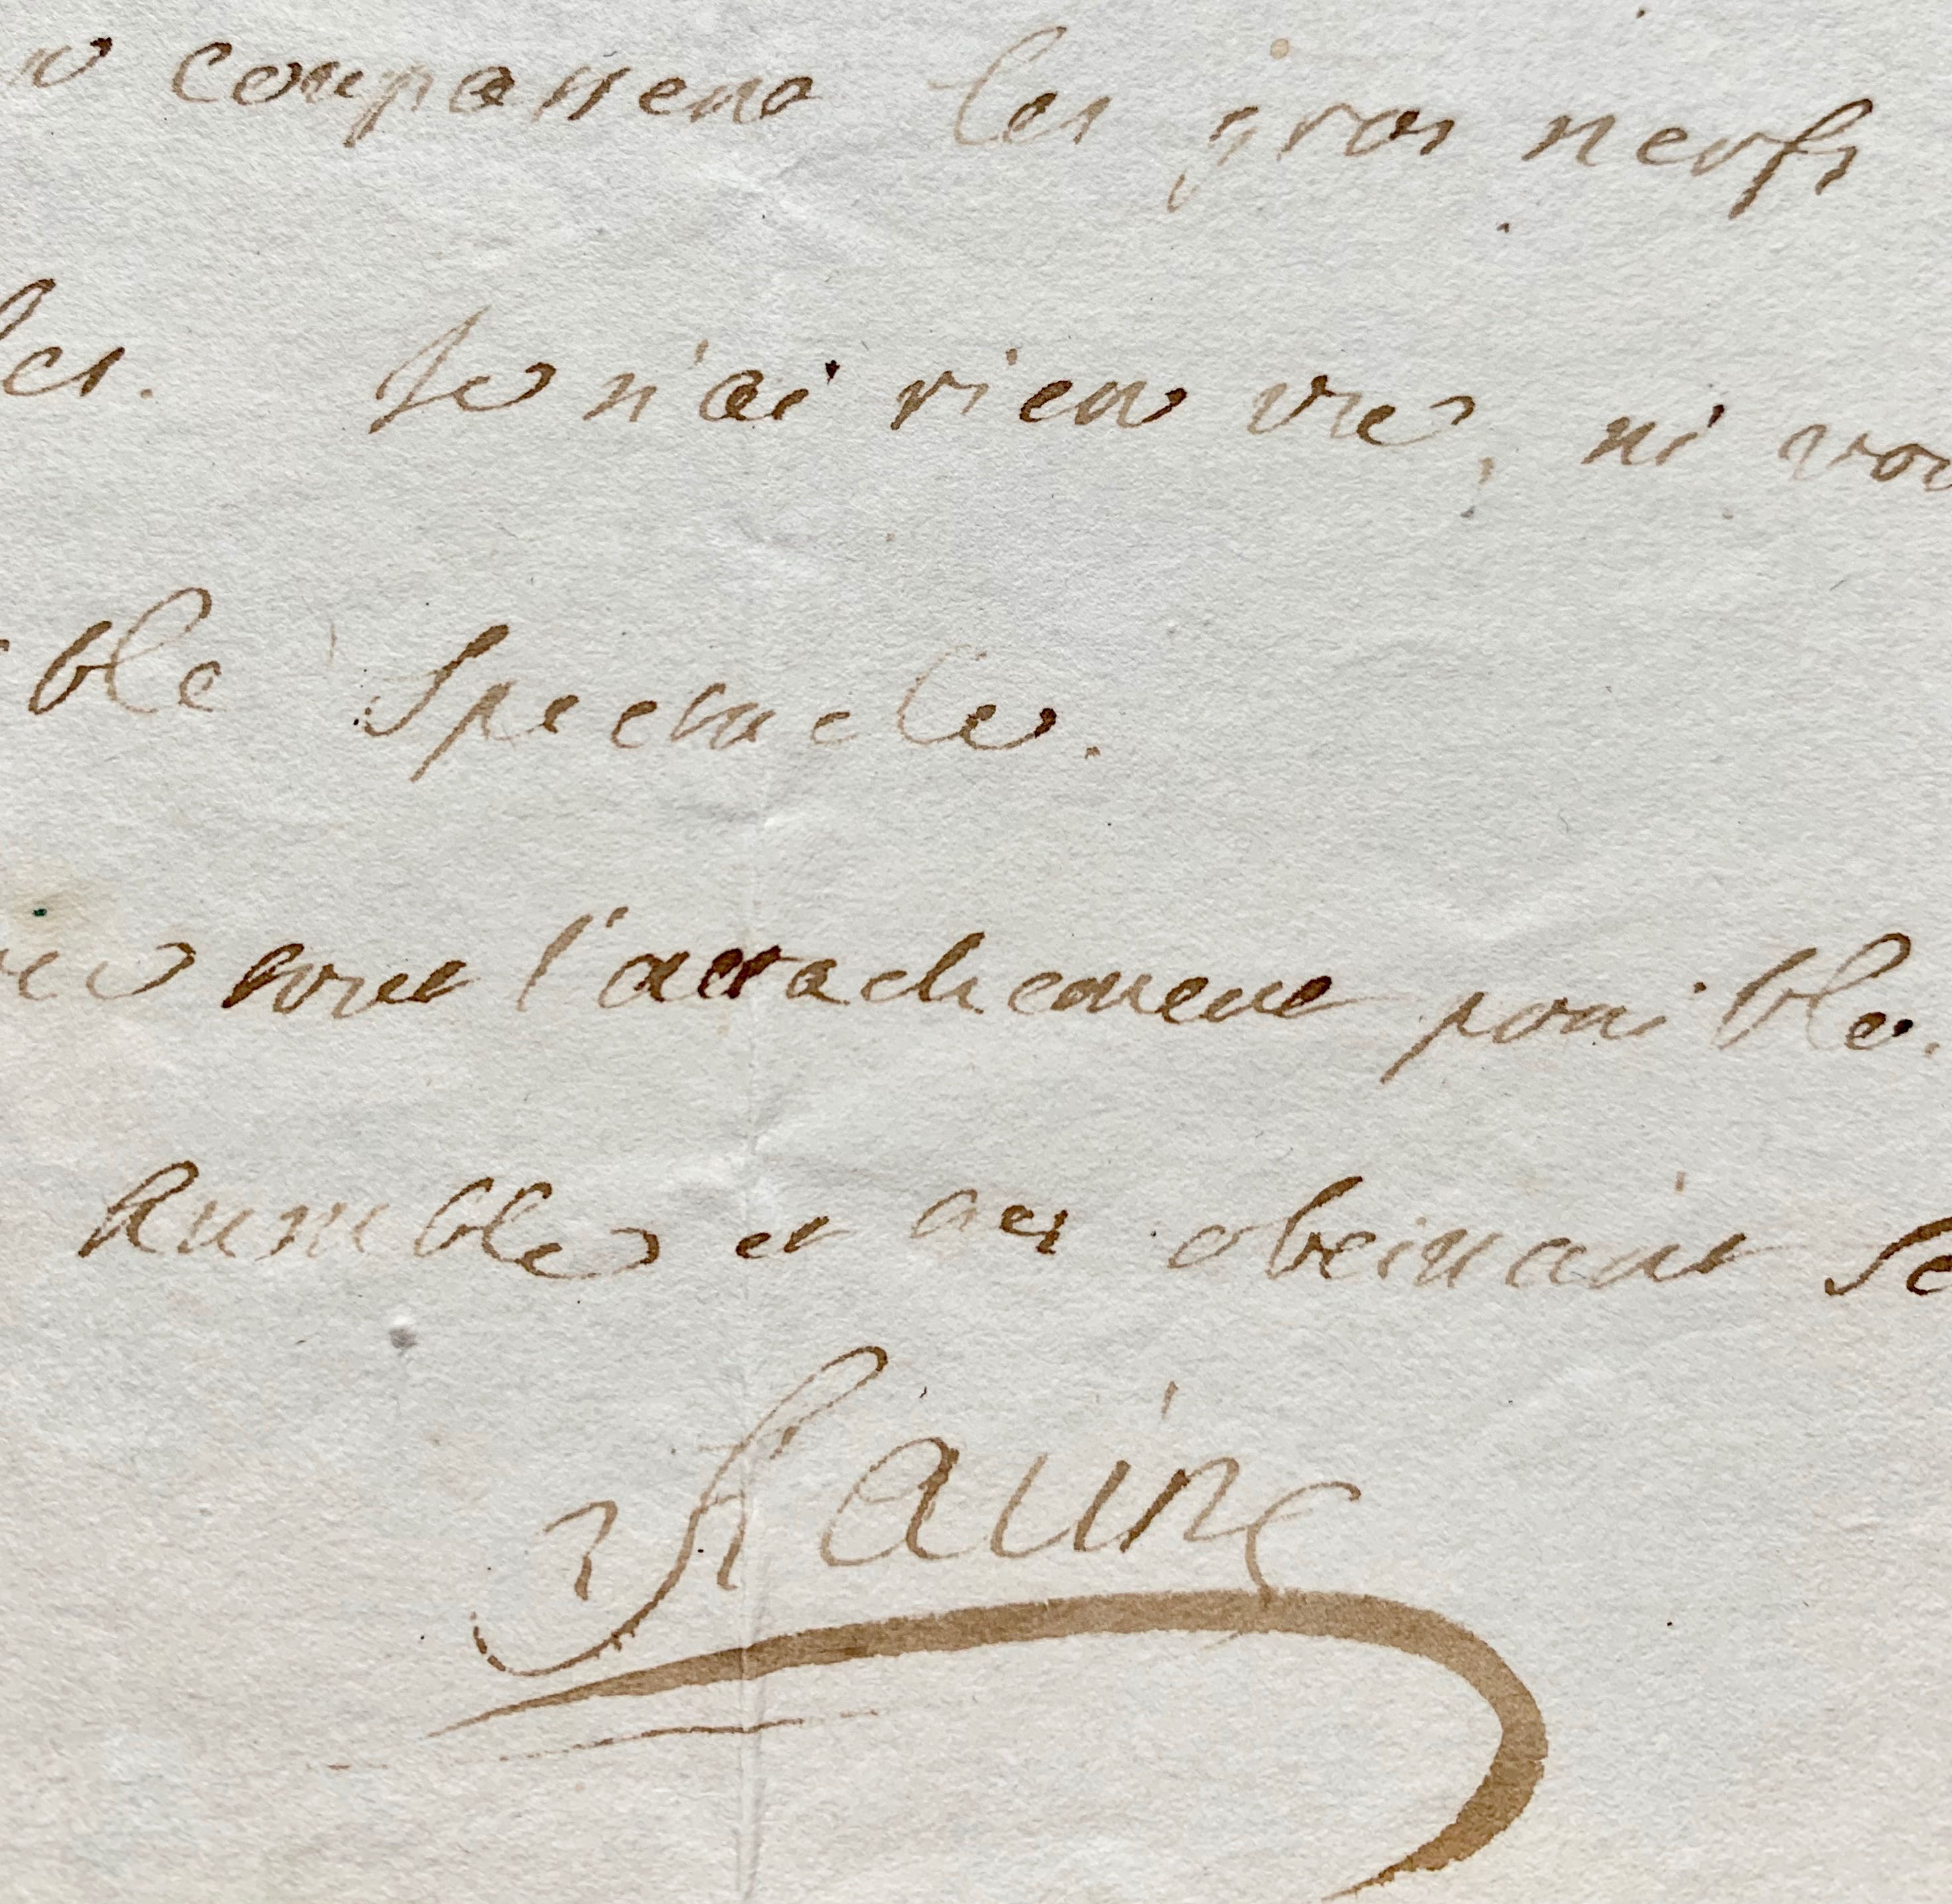 coupassent les gros nerfs
les. Je n'ai rien vu, ni vou
ble spectacle.
tout l'attachement possible.
humble et tres obeissant se